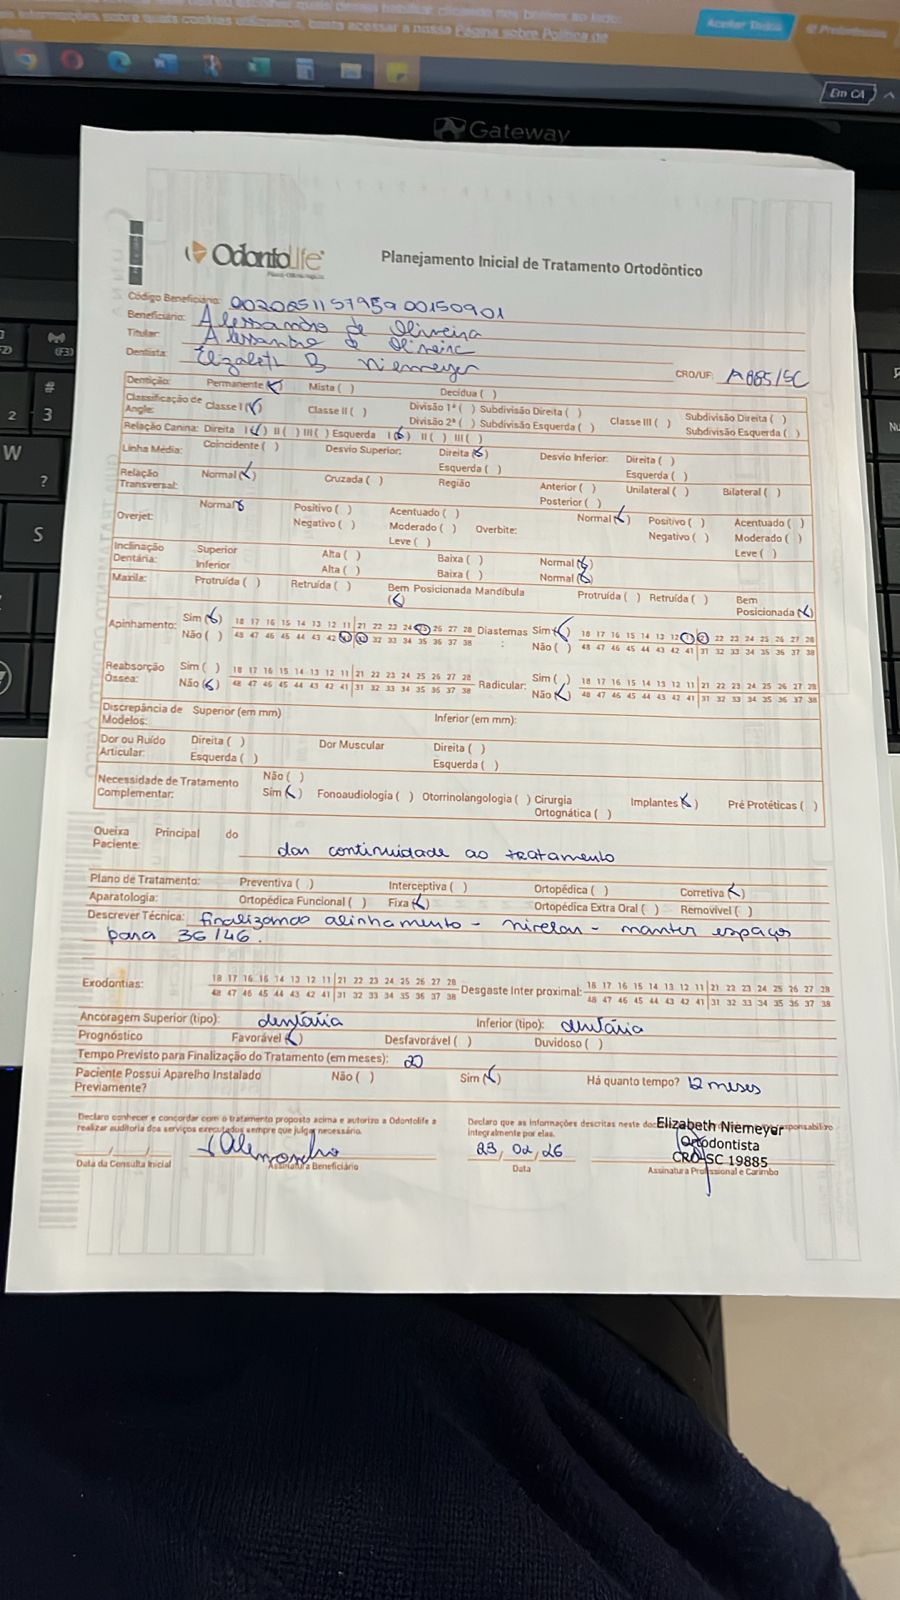 Aceitar Todos
Página sobre Política de
Em CA
Gateway
OdontoLife
Planejamento Inicial de Tratamento Ortodôntico
Código Beneficiário: 00208511579590015 0901
Beneficiário: Alessandro de Oliveira
Titular: Alessandro de Oliveira
Dentista: Elizabeth B Niemeyer CRO/UF:
Dentição: Permanente (x) Mista ( ) Decídua ( )
Classificação de Angle: Classe I (x) Classe II ( ) Divisão 1ª ( ) Subdivisão Direita ( ) Classe III ( ) Subdivisão Direita ( )
Divisão 2ª ( ) Subdivisão Esquerda ( ) Subdivisão Esquerda ( )
Relação Canina: Direita I (x) II ( ) III ( ) Esquerda I (x) II ( ) III ( )
Linha Média: Coincidente ( ) Desvio Superior: Direita (x) Desvio Inferior: Direita ( )
Esquerda ( ) Esquerda ( )
Relação Transversal: Normal (x) Cruzada ( ) Região Anterior ( ) Unilateral ( ) Bilateral ( )
Posterior ( )
Overjet: Normal (x) Positivo ( ) Acentuado ( ) Overbite: Normal (x) Positivo ( ) Acentuado ( )
Negativo ( ) Moderado ( ) Negativo ( ) Moderado ( )
Leve ( ) Leve ( )
Inclinação Dentária: Superior Alta ( ) Baixa ( ) Normal (x)
Inferior Alta ( ) Baixa ( ) Normal (x)
Maxila: Protruída ( ) Retruída ( ) Bem Posicionada (x) Mandíbula Protruída ( ) Retruída ( ) Bem Posicionada (x)
Apinhamento: Sim (x) 18 17 16 15 14 13 12 11 21 22 23 24 25 26 27 28 Diastemas: Sim (x) 18 17 16 15 14 13 12 11 21 22 23 24 25 26 27 28
Não ( ) 48 47 46 45 44 43 42 41 31 32 33 34 35 36 37 38 Não ( ) 48 47 46 45 44 43 42 41 31 32 33 34 35 36 37 38
Reabsorção Óssea: Sim ( ) 18 17 16 15 14 13 12 11 21 22 23 24 25 26 27 28 Radicular: Sim ( ) 18 17 16 15 14 13 12 11 21 22 23 24 25 26 27 28
Não (x) 48 47 46 45 44 43 42 41 31 32 33 34 35 36 37 38 Não (x) 48 47 46 45 44 43 42 41 31 32 33 34 35 36 37 38
Discrepância de Modelos: Superior (em mm) Inferior (em mm):
Dor ou Ruído Articular: Direita ( ) Dor Muscular Direita ( )
Esquerda ( ) Esquerda ( )
Necessidade de Tratamento Complementar: Não ( )
Sim (x) Fonoaudiologia ( ) Otorrinolangologia ( ) Cirurgia Ortognática ( ) Implantes (x) Pré Protéticas ( )
Queixa Principal do Paciente: dar continuidade ao tratamento
Plano de Tratamento: Preventiva ( ) Interceptiva ( ) Ortopédica ( ) Corretiva (x)
Aparatologia: Ortopédica Funcional ( ) Fixa (x) Ortopédica Extra Oral ( ) Removível ( )
Descrever Técnica: finalizando alinhamento - nivelar - manter espaços
para 36/46.
Exodontias: 18 17 16 15 14 13 12 11 21 22 23 24 25 26 27 28 Desgaste Inter proximal: 18 17 16 15 14 13 12 11 21 22 23 24 25 26 27 28
48 47 46 45 44 43 42 41 31 32 33 34 35 36 37 38 48 47 46 45 44 43 42 41 31 32 33 34 35 36 37 38
Ancoragem Superior (tipo): dentária Inferior (tipo): dentária
Prognóstico Favorável (x) Desfavorável ( ) Duvidoso ( )
Tempo Previsto para Finalização do Tratamento (em meses): 20
Paciente Possui Aparelho Instalado Previamente? Não ( ) Sim (x) Há quanto tempo? 12 meses
Declaro conhecer e concordar com o tratamento proposto acima e autorizo a Odontolife a
realizar auditoria dos serviços executados sempre que julgar necessário.
Declaro que as informações descritas neste responsabilizo
integralmente por elas.
Elizabeth Niemeyer
Ortodontista
CRO-SC 19885
Alessandro
23, 02, 26
Data da Consulta Inicial
Assinatura Beneficiário
Data
Assinatura Profissional e Carimbo